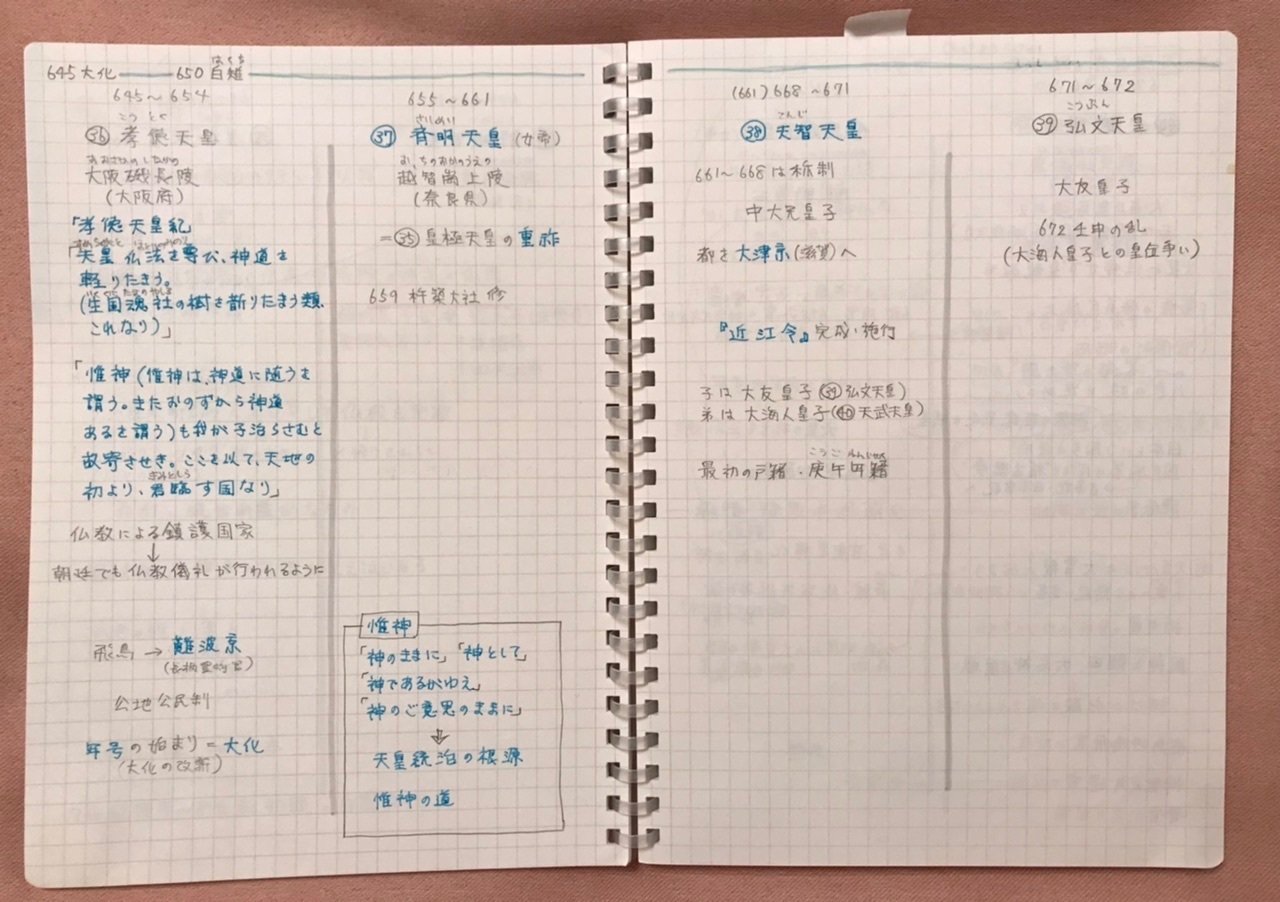 645 大化 650 白雉
はくち
645～654
こうとく
㊱ 孝徳天皇
おおさかのしながの
大阪磯長陵
(大阪府)
「孝徳天皇紀
「天皇 仏法を尊び、神道を
軽りたまう。
(生国魂社の樹を斮りたまう類、
これなり)」
「惟神(惟神は、神道に随うを
謂う。またおのずから神道
あるを謂う)も我が子治らさむと
故寄させき。ここを以て、天地の
初より、君臨す国なり」
仏教による鎮護国家
↓
朝廷でも仏教儀礼が行われるように
飛鳥 → 難波京
(長柄豊碕宮)
公地公民制
年号の始まり=大化
(大化の改新)
655～661
さいめい
㊲ 斉明天皇(女帝)
おちのおかのうえの
越智崗上陵
(奈良県)
=㉟皇極天皇の重祚
659 杵築大社 修
惟神
「神のままに」「神として」
「神であるがゆえ」
「神のご意思のままに」
↓
天皇統治の根源
惟神の道
(661) 668 ～671
てんじ
㊳ 天智天皇
661～668は称制
中大兄皇子
都を大津京(滋賀)へ
『近江令』完成・施行
子は 大友皇子(㊴弘文天皇)
弟は 大海人皇子(㊵天武天皇)
こうごねんじゃく
最初の戸籍・庚午年籍
671～672
こうぶん
㊴ 弘文天皇
大友皇子
672 壬申の乱
(大海人皇子との皇位争い)